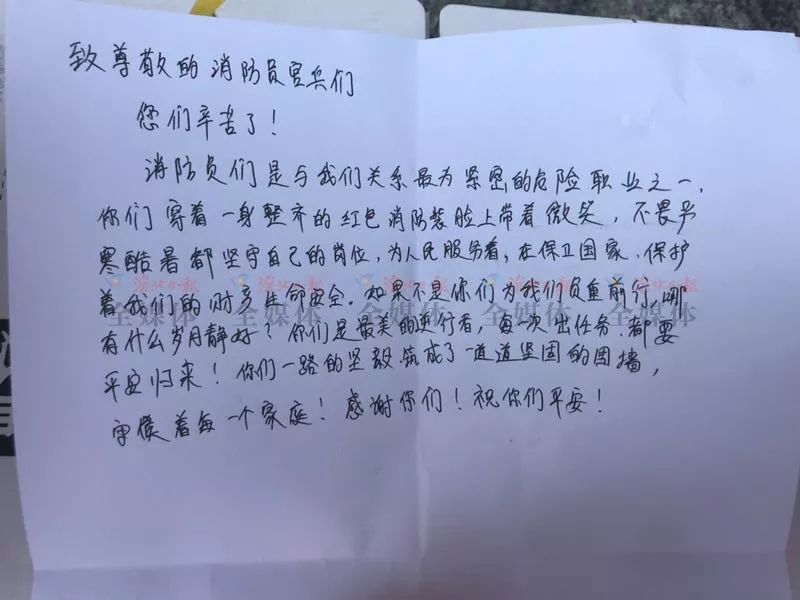 致尊敬的消防员官兵们
您们辛苦了！
消防员们是与我们关系最为紧密的危险职业之一，
你们穿着一身整齐的红色消防装脸上带着微笑，不畏严
寒酷暑都坚守自己的岗位，为人民服务着，在保卫国家、保护
着我们的财产生命安全。如果不是你们为我们负重前行，哪
有什么岁月静好？你们是最美的逆行者，每一次出任务，都要
平安归来！你们一路的坚毅筑成了一道道坚固的围墙，
守候着每一个家庭！感谢你们！祝你们平安！
全媒体 全媒体 全媒体 全媒体 全媒体